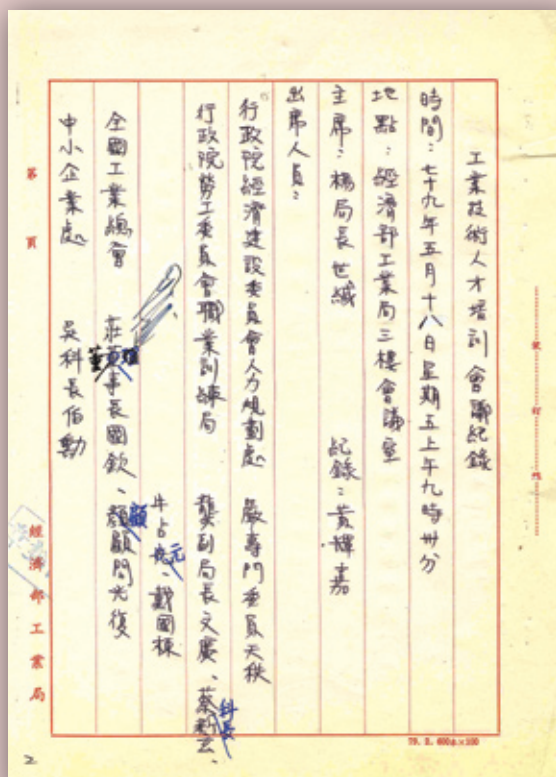 工業技術人才培訓會議紀錄
時間：七十九年五月十八日星期五上午九時卅分
地點：經濟部工業局三樓會議室
主席：楊局長世緘 紀錄：黃輝嘉
出席人員：
行政院經濟建設委員會人力規劃處 嚴專門委員天秩
行政院勞工委員會職業訓練局 龔副局長文廣、蔡
科長
牛占元、戴國棟
全國工業總會 莊董事長國欽、顏顧問光復
中小企業處 吳科長伯勳
第 頁
裝 訂 線
經濟部工業局
2